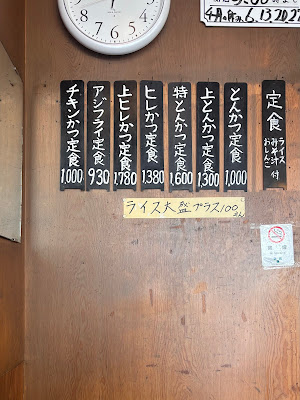 4月の休み 6.13.20.27
定食 ライス みそ汁 おしんこ 付
とんかつ定食 1,000
上とんかつ定食 1,300
特とんかつ定食 1,600
ヒレかつ定食 1,380
上ヒレかつ定食 1,780
アジフライ定食 930
チキンかつ定食 1,000
ライス大盛プラス100円